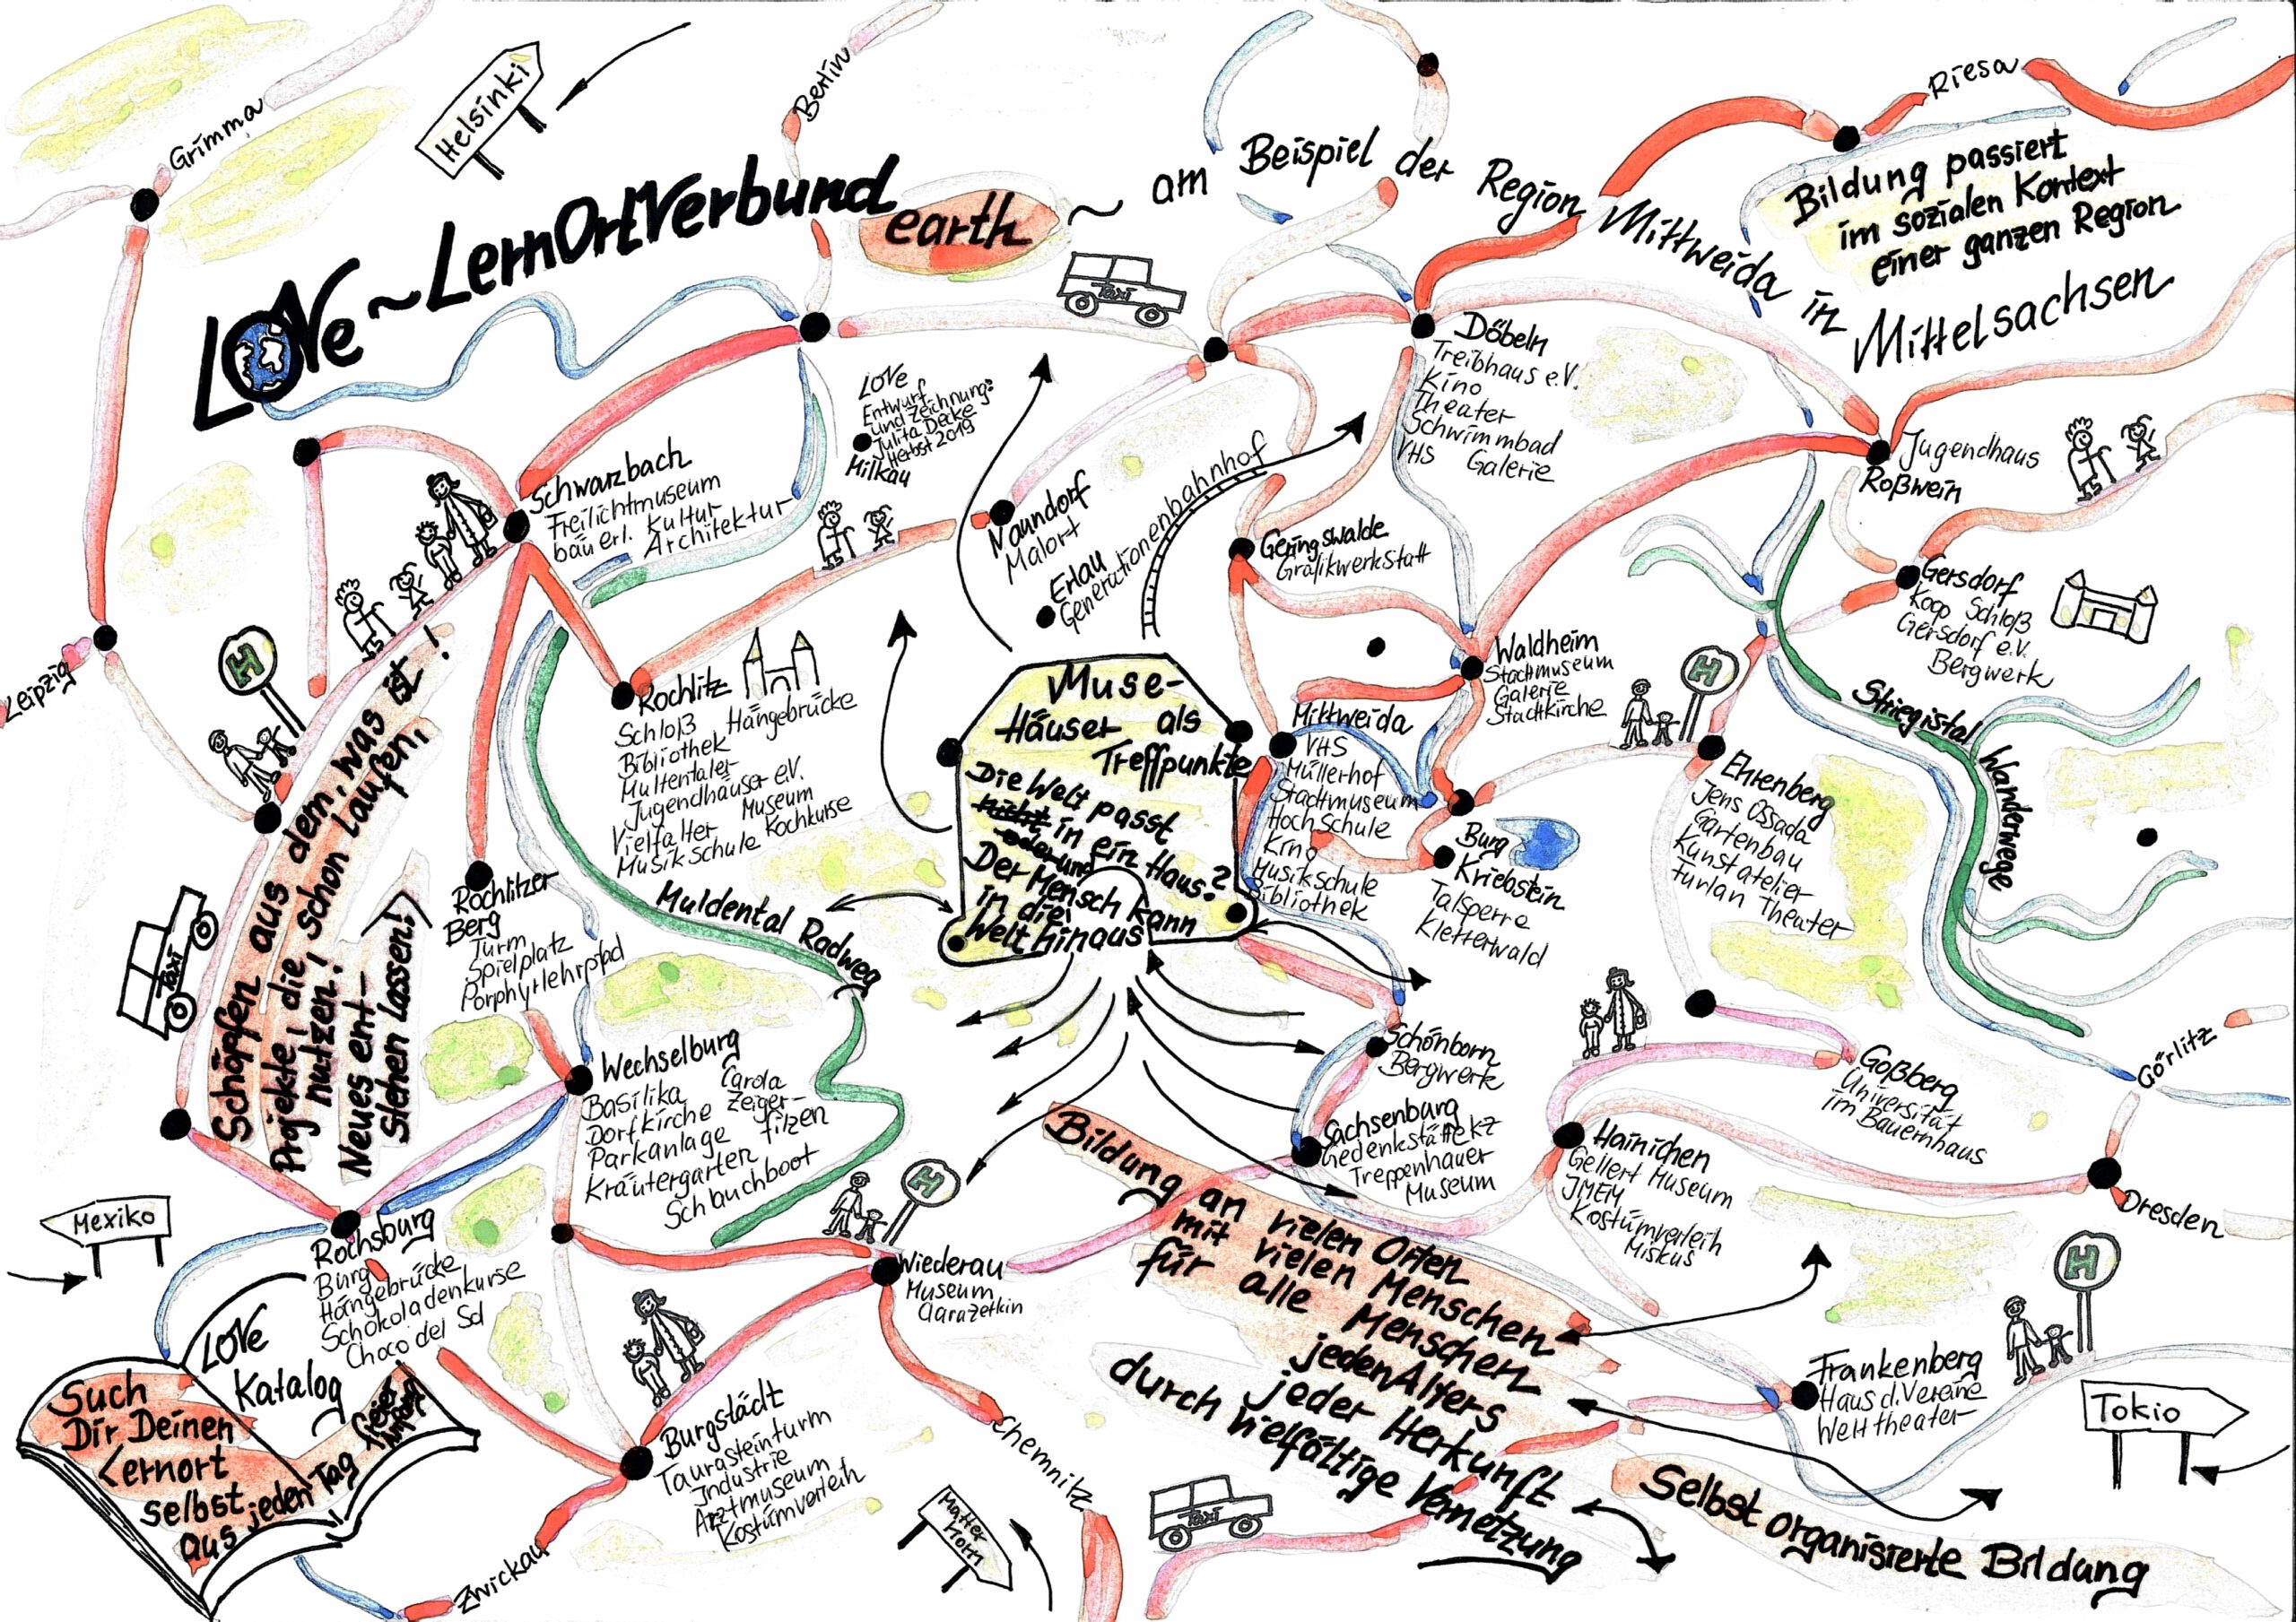 Grimma
Helsinki
Berlin
Riesa
LOVe ~ LernOrtVerbund
earth ~ am Beispiel der Region Mittweida in
Mittelsachsen
Bildung passiert
im sozialen Kontext
einer ganzen Region
Taxi
LOVe
Entwurf
und Zeichnung:
Julita Decke
Herbst 2019
Milkau
Döbeln
Treibhaus e.V.
Kino
Theater
Schwimmbad
VHS Galerie
Jugendhaus
Roßwein
Schwarzbach
Freilichtmuseum
bäuerl. Kultur
Architektur
Naundorf
Malort
Erlau
Generationenbahnhof
Geringswalde
Grafikwerkstatt
Gersdorf
Koop Schloß
Gersdorf e.V.
Bergwerk
Leipzig
H
Rochlitz
Schloß Hängebrücke
Bibliothek
Muldentaler
Jugendhäuser e.V.
Vielfalter Museum
Musikschule Kochkurse
Muse-
Häuser als
Treffpunkte
Die Welt passt
nicht in ein Haus?
oder und
Der Mensch kann
in die
Welt hinaus!
Waldheim
Stadtmuseum
Galerie
Stadtkirche
H
Mittweida
VHS
Müllerhof
Stadtmuseum
Hochschule
Kino
Musikschule
Bibliothek
Burg
Kriebstein
Talsperre
Kletterwald
Ehrenberg
Jens Ossada
Gartenbau
Kunstatelier
Furlan Theater
Striegistal Wanderwege
Schöpfen aus dem, was ist!
Projekte, die schon laufen,
nutzen!
Neues ent-
stehen lassen!
Taxi
Rochlitzer
Berg
Turm
Spielplatz
Porphyrlehrpfad
Muldental Radweg
Wechselburg
Basilika Carola
Dorfkirche Zeiger-
Parkanlage filzen
Kräutergarten
Schauchboot
Schönborn
Bergwerk
Sachsenburg
Gedenkstätte KZ
Treppenhauer
Museum
Goßberg
Universität
im Bauernhaus
Görlitz
Hainichen
Gellert Museum
JMEM
Kostümverleih
Miskus
Dresden
Mexiko
Rochsburg
Burg
Hängebrücke
Schokoladenkurse
Choco del Sol
H
Wiederau
Museum
Clarazetkin
Bildung an vielen Orten
mit vielen Menschen
für alle Menschen
jeden Alters
jeder Herkunft
durch vielfältige Vernetzung
H
Frankenberg
Haus d. Vereine
Welttheater
Tokio
LOVe
Katalog
Such
Dir Deinen
Lernort
selbst
aus jeden Tag
Burgstädt
Taurasteinturm
Industrie
Arztmuseum
Kostümverleih
Chemnitz
Zwickau
Matter
Horn
Taxi
Selbst organisierte Bildung